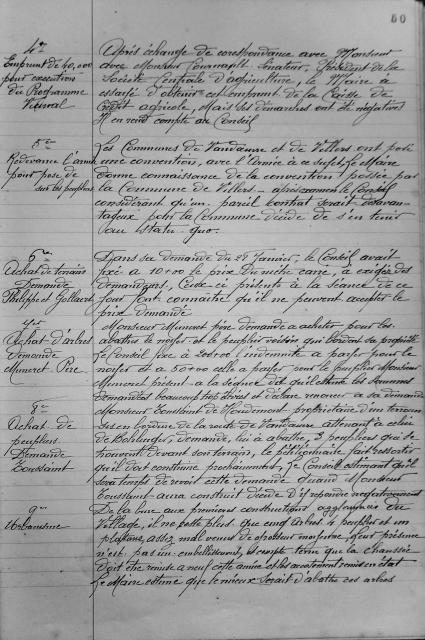 60
4e
Emprunt de 40,000
pour exécution
du Programme
Rural
Après échange de correspondance avec Monsieur
avec Monsieur Cournault, Sénateur, Président de la
Société Centrale d'agriculture, le Maire a
essayé d'obtenir cet emprunt de la Caisse de
Crédit agricole, Mais les démarches ont été négatives
Il en rend compte au Conseil
5e
Redevance l'armée
pour pose de
sur les peupliers
Les Communes de Vandœuvre et de Villers ont
une convention, avec l'Armée à ce sujet, le Maire
donne connaissance de la convention passée par
la Commune de Villers - après examen le Conseil
considérant qu'un pareil contrat serait désavan-
tageux pour la Commune décide de s'en tenir
au statu-quo.
6e
Achat de terrain
Demande
Philippe et Gollaert
Dans sa demande du 28 Janvier, le Conseil avait
fixé à le prix du mètre carré, à exiger des
demandeurs, Ceux-ci présents à la séance de ce
jour font connaître qu'il ne peuvent accepter le
prix demandé
Achat d'arbres
Demande
Père
Monsieur père demande à acheter pour les
abattre le noyer et le peuplier voisin qui bordent sa propriété
Le Conseil fixe à l'indemnité à payer pour le
noyer et à celle à payer pour le peuplier Monsieur
présent à la séance dit qu'il estime les sommes
demandées beaucoup trop élevées et déclare renoncer à sa demande
8e
Achat de
peupliers
Demande
Toussaint
Monsieur Toussaint de Houdemont, propriétaire d'un terrain
sis en bordure de la route de Vandœuvre attenant à celui
de demande, lui à abattre, 3 peupliers qui se
trouvent devant son terrain, le pétitionnaire, fait ressortir
qu'il doit construire prochainement, Le Conseil estimant qu'il
sera temps de revoir cette demande quand Monsieur
Toussaint aura construit décide d'y répondre négativement
9e
Urbanisme
De la aux premières constructions du
Village, il ne reste plus que cinq arbres 4 peupliers et un
platane, assez mal venus de grosseur moyenne, leur présence
n'est pas un embellissement, compte tenu que la chaussée
doit être remise à neuf cette année et les accotements remis en état
Le Maire estime que le mieux serait d'abattre ces arbres